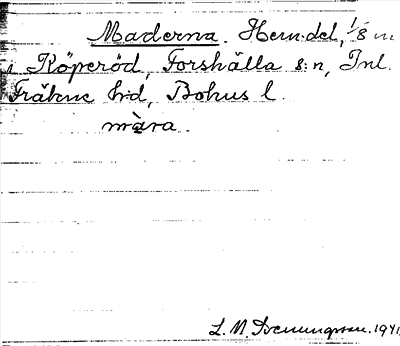 Maderna. Hem:del, 1/8 m
i Köperöd, Forshälla s:n, Inl.
Fräkne h:d, Bohus l.
màra.
L. M. Svenungsson. 1941